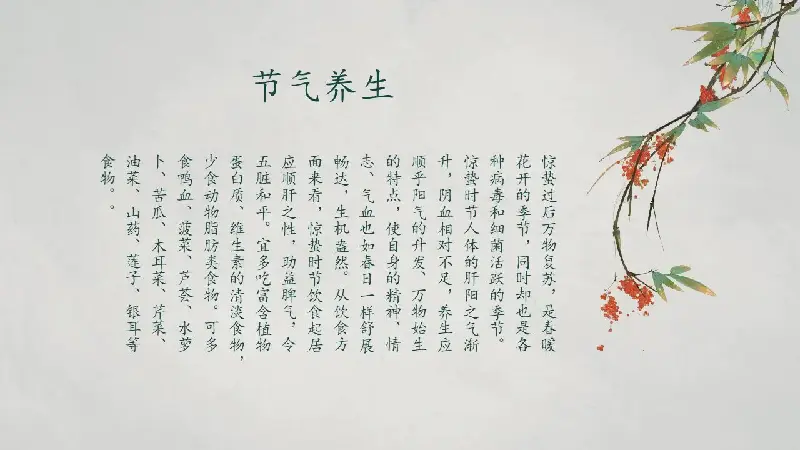 节气养生
惊蛰过后万物复苏，是春暖
花开的季节，同时却也是各
种病毒和细菌活跃的季节。
惊蛰时节人体的肝阳之气渐
升，阴血相对不足，养生应
顺乎阳气的升发、万物始生
的特点，使自身的精神、情
志、气血也如春日一样舒展
畅达，生机盎然。从饮食方
而来看，惊蛰时节饮食起居
应顺肝之性，助益脾气，令
五脏和平。宜多吃富含植物
蛋白质、维生素的清淡食物，
少食动物脂肪类食物。可多
食鸭血、菠菜、芦荟、水萝
卜、苦瓜、木耳菜、芹菜、
油菜、山药、莲子、银耳等
食物。。